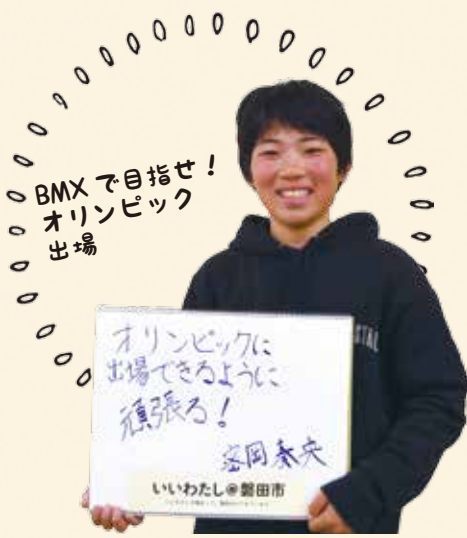 BMXで目指せ！
オリンピック
出場
オリンピックに
出場できるように
頑張る！
いいわたし@磐田市